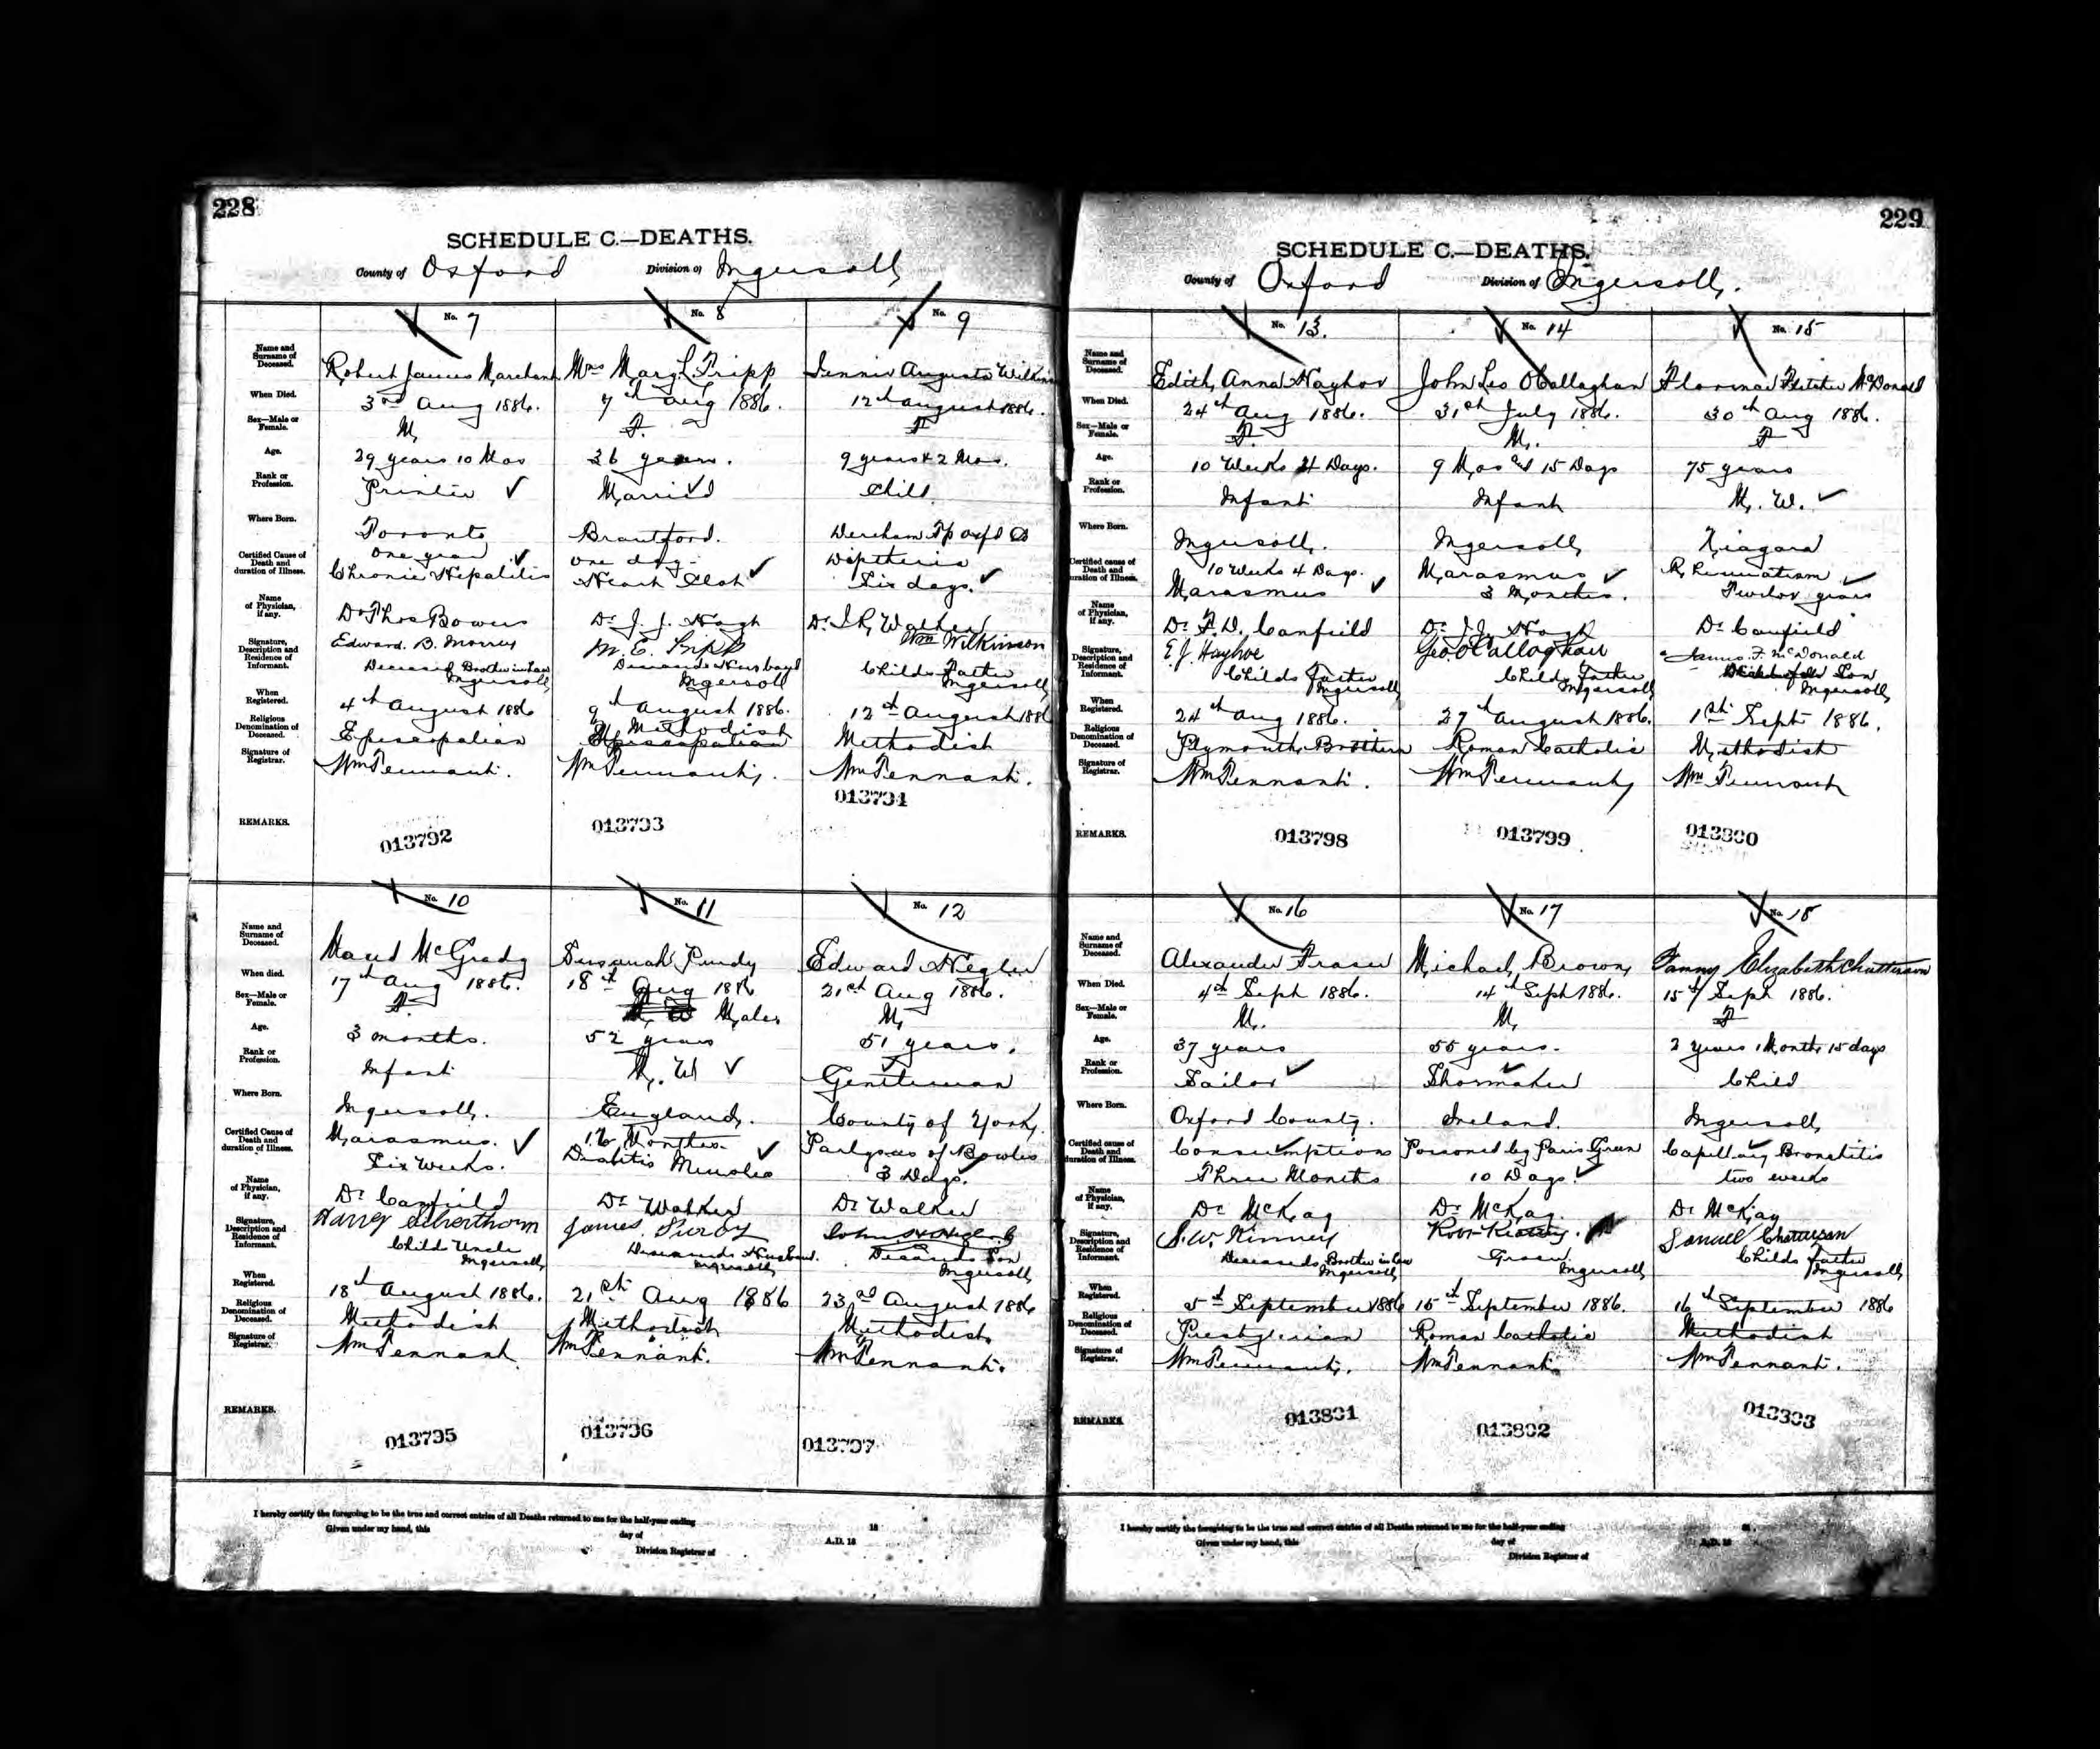 228
SCHEDULE C.—DEATHS.
County of Oxford Division of Ingersoll
No. 7 No. 8 No. 9
Name and Surname of Deceased. Robert James Marchant Mrs Mary L. Tripp Jennie Augusta Wilkinson
When Died. 3rd Aug 1886. 7th Aug 1886. 12th august 1886.
Sex—Male or Female. M, F. F
Age. 29 years 10 Mos 36 years. 9 years & 2 Mos.
Rank or Profession. Printer Married Child
Where Born. Toronto Brantford. Dereham Tp Oxfd Co
Certified Cause of Death and duration of Illness. one year one day Diptheria
Chronic Hepatitis Heart Clot Six days.
Name of Physician, if any. Dr Thos Bowers Dr J. J. Hoyt Dr. I R, Walker
Signature, Description and Residence of Informant. Edward B. Morrey M. E. Tripp Wm Wilkinson
Deceased Brother in Law Deceaseds Husband Childs Father
Ingersoll Ingersoll Ingersoll
When Registered. 4th August 1886 9th August 1886. 12th August 1886
Religious Denomination of Deceased. Episcopalian Methodist Episcopalian Methodist
Signature of Registrar. Wm Tennant. Wm Tennant. Wm Tennant.
REMARKS. 013792 013793 013794
No. 10 No. 11 No. 12
Name and Surname of Deceased. Maud McGrady Susanah Purdy Edward Hegler
When died. 17th Aug 1886. 18th Aug 1886 21st Aug 1886.
Sex—Male or Female. F. Male, M,
Age. 3 months. 52 years 51 years.
Rank or Profession. Infant M. W Gentleman
Where Born. Ingersoll. England, County of York,
Certified Cause of Death and duration of Illness. Marasmus. Months. Parlysus of Bowles
Six Weeks. Diabitis 3 Days.
Name of Physician, if any. Dr Canfield Dr Walker Dr Walker
Signature, Description and Residence of Informant. Harry James Purdy John
Child Uncle Deceaseds Husband. Deceaseds Son
Ingersoll Ingersoll Ingersoll
When Registered. 18th August 1886. 21st Aug 1886 23rd August 1886
Religious Denomination of Deceased. Methodist Methodist Methodist
Signature of Registrar. Wm Tennant Wm Tennant. Wm Tennant.
REMARKS. 013795 013796 013797
I hereby certify the foregoing to be the true and correct entries of all Deaths returned to me for the half-year ending 18
Given under my hand, this day of A.D. 18
Division Registrar of
229
SCHEDULE C.—DEATHS.
County of Oxford Division of Ingersoll.
No. 13. No. 14 No. 15
Name and Surname of Deceased. Edith Anna Hayhoe John Leo OCallaghan Fletcher McDonald
When Died. 24th Aug 1886. 31st July 1886. 30th Aug 1886.
Sex—Male or Female. F. M. F
Age. 10 Weeks 4 Days. 9 Mos and 15 Days 75 years
Rank or Profession. Infant Infant M. W.
Where Born. Ingersoll. Ingersoll Niagara
Certified cause of Death and duration of Illness. 10 Weeks 4 Days. Marasmus Rheumatism
Marasmus 3 Months. Twelve years
Name of Physician, if any. Dr F. D. Canfield Dr J. J. Hoyt Dr Canfield
Signature, Description and Residence of Informant. E J Hayhoe Geo. O'Callaghan James F. McDonald
Childs Father Childs Father Son
Ingersoll Ingersoll Ingersoll
When Registered. 24th Aug 1886. 27th August 1886. 1st Sept 1886.
Religious Denomination of Deceased. Plymouth Brothern Roman Catholic Methodist
Signature of Registrar. Wm Tennant. Wm Tennant Wm Tennant
REMARKS. 013798 013799 013800
No. 16 No. 17 No. 18
Name and Surname of Deceased. Alexander Fraser Michael Brown, Fanny Elizabeth Chatterson
When Died. 4th Sept 1886. 14th Sept 1886. 15th Sept 1886.
Sex—Male or Female. M. M, F
Age. 37 years 55 years. 2 years 1 Month 15 days
Rank or Profession. Sailor Shoemaker Child
Where Born. Oxford County. Ireland. Ingersoll
Certified cause of Death and duration of Illness. Consumption Poisoned by Paris Green Capillary Bronchitis
Three Months 10 Days. two weeks
Name of Physician, if any. Dr McKay Dr McKay. Dr McKay
Signature, Description and Residence of Informant. S. W. Kinney Robt Samuel Chatterson
Deceaseds Brother in law Childs Father
Ingersoll Ingersoll Ingersoll
When Registered. 5th September 1886 15th September 1886. 16th September 1886
Religious Denomination of Deceased. Presbyterian Roman Catholic Methodist
Signature of Registrar. Wm Tennant. Wm Tennant Wm Tennant.
REMARKS. 013801 013802 013803
I hereby certify the foregoing to be the true and correct entries of all Deaths returned to me for the half-year ending
Given under my hand, this day of A.D. 18
Division Registrar of